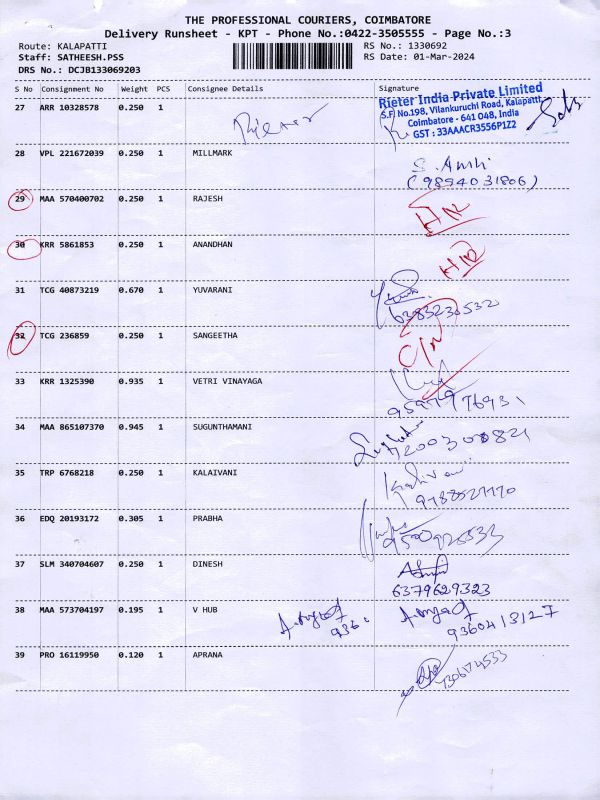 THE PROFESSIONAL COURIERS, COIMBATORE
Delivery Runsheet - KPT - Phone No.:0422-3505555 - Page No.:3
Route: KALAPATTI
Staff: SATHEESH.PSS
DRS No.: DCJB133069203
RS No.: 1330692
RS Date: 01-Mar-2024
S No Consignment No Weight PCS Consignee Details Signature
27 ARR 10328578 0.250 1
Rieter India Private Limited
S.F No.198, Vilankuruchi Road, Kalapatti
Coimbatore - 641 048, India
GST : 33AAACR3556P1Z2
28 VPL 221672039 0.250 1 MILLMARK
(9894031806)
29 MAA 570400702 0.250 1 RAJESH
30 KRR 5861853 0.250 1 ANANDHAN
31 TCG 40873219 0.670 1 YUVARANI
6383230532
32 TCG 236859 0.250 1 SANGEETHA
33 KRR 1325390 0.935 1 VETRI VINAYAGA
34 MAA 865107370 0.945 1 SUGUNTHAMANI
35 TRP 6768218 0.250 1 KALAIVANI
36 EDQ 20193172 0.305 1 PRABHA
37 SLM 340704607 0.250 1 DINESH
6379629323
38 MAA 573704197 0.195 1 V HUB
9360413127
39 PRO 16119950 0.120 1 APRANA